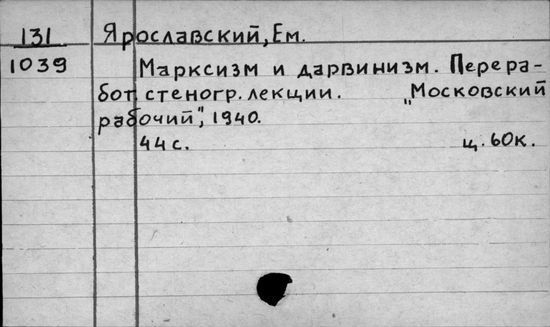 131 Ярославский, Ем.
1039 Марксизм и дарвинизм. Перера-
бот. стеногр. лекции. „Московский
рабочий", 1940.
44 с. ц. 60к.